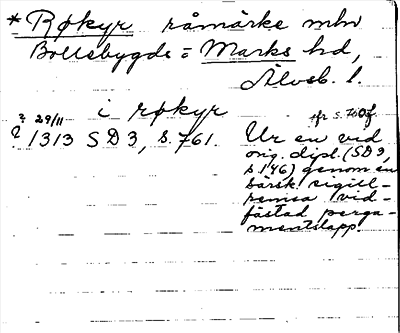 * Røkyr råmärke mln
Bollebygds = Marks hd,
Älvsb. l.
i røkyr
jfr s. 760f.
? 29/11
? 1313 SD 3, s. 761.
Ur en vid
orig. dipl. (SD 3,
s 146) genom en
bärsk sigill-
remsa vid-
fästad perga-
mentslapp.